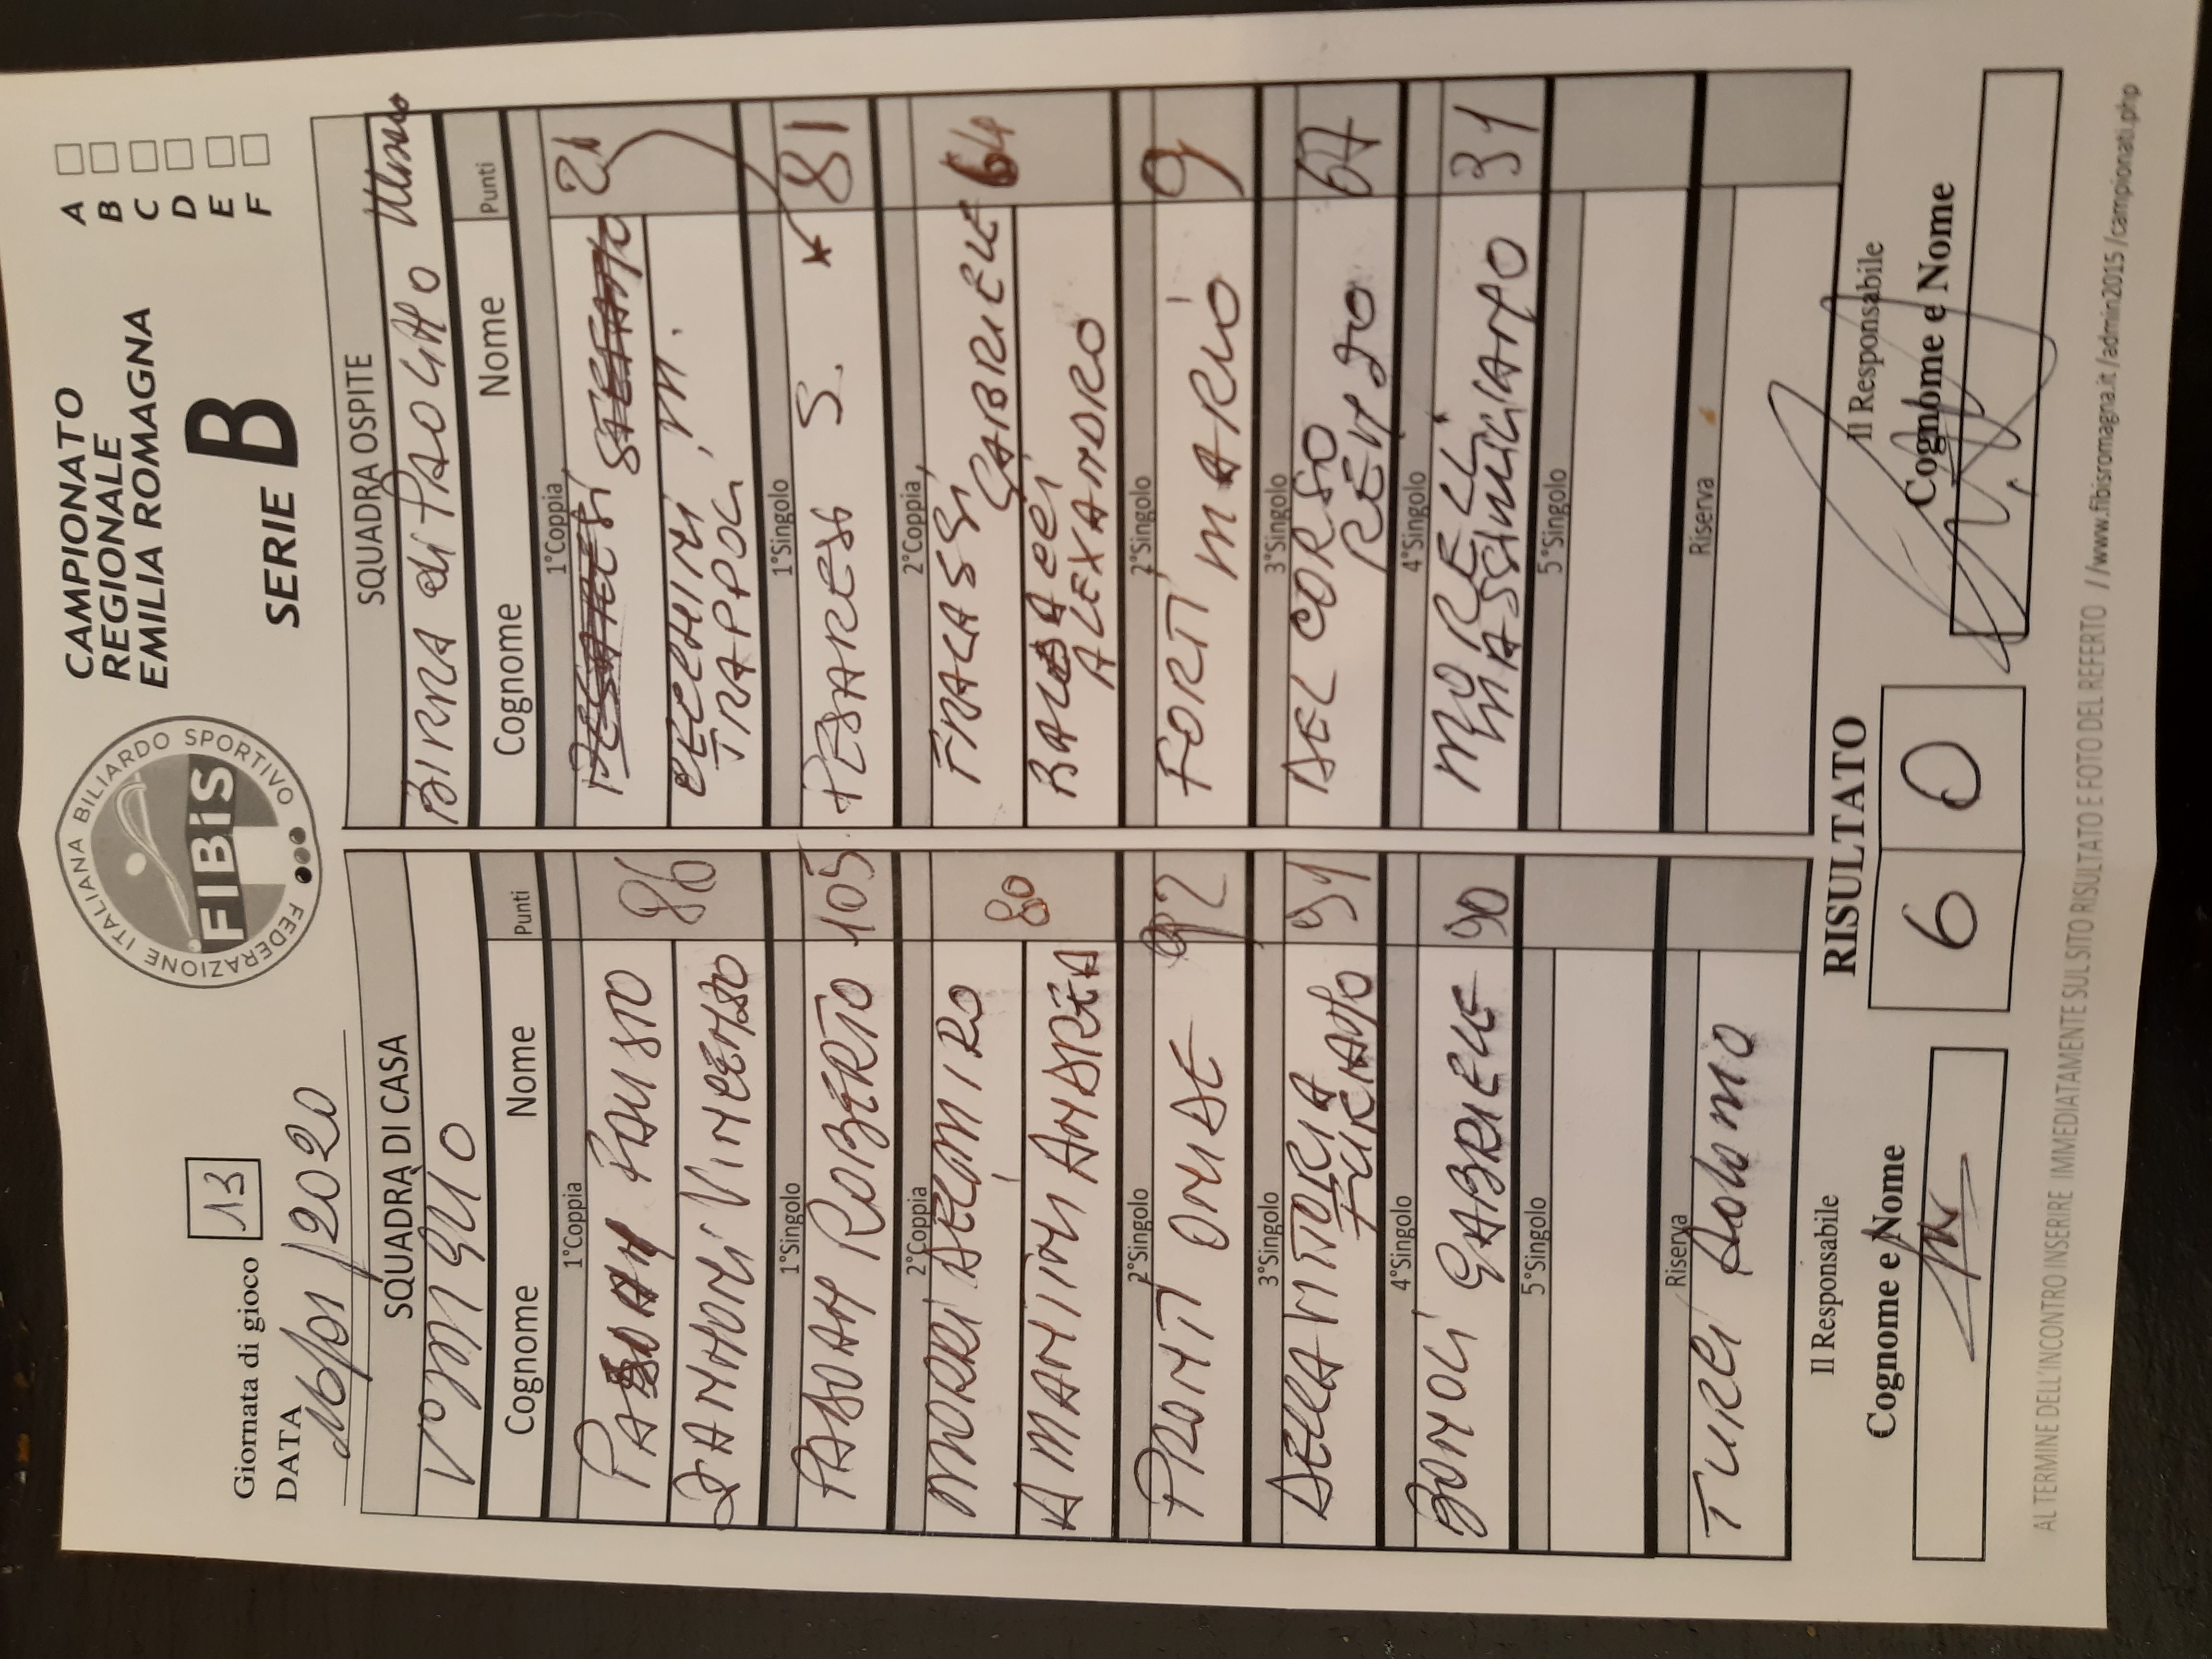 Giornata di gioco 13
DATA 16/01/2020
FEDERAZIONE ITALIANA BILIARDO SPORTIVO
FIBiS
CAMPIONATO
REGIONALE
EMILIA ROMAGNA
SERIE B
A
B
C
D
E
F
SQUADRA DI CASA
SQUADRA OSPITE
BIRRA di PAOLINO
Cognome Nome Punti
Cognome Nome Punti
1°Coppia
FAUSTO 86
ZANNONI VINCENZO
1°Coppia
PESARESI STEFANO 21
CECCHINI M.
TRAPPOLI
1°Singolo
PASOLINI ROBERTO 105
1°Singolo
PESARESI S. 81
2°Coppia
MORRI DELMIRO 80
AMANTINI ANDREA
2°Coppia
FRACASSI GABRIELE 64
BALDACCI
ALEXANDRO
2°Singolo
PRONTI 92
2°Singolo
FORTI MARIO 9
3°Singolo
DELLA VITTORIA 91
LUCIANO
3°Singolo
DEL CORSO 67
RENZO
4°Singolo
BONOLI GABRIELE 90
4°Singolo
MORELLI 31
MASSIMILIANO
5°Singolo
5°Singolo
Riserva
TURCI
Riserva
Il Responsabile
Cognome e Nome
RISULTATO
6 0
Il Responsabile
Cognome e Nome
AL TERMINE DELL'INCONTRO INSERIRE IMMEDIATAMENTE SUL SITO RISULTATO E FOTO DEL REFERTO //www.fibisromagna.it/admin2015/campionati.php